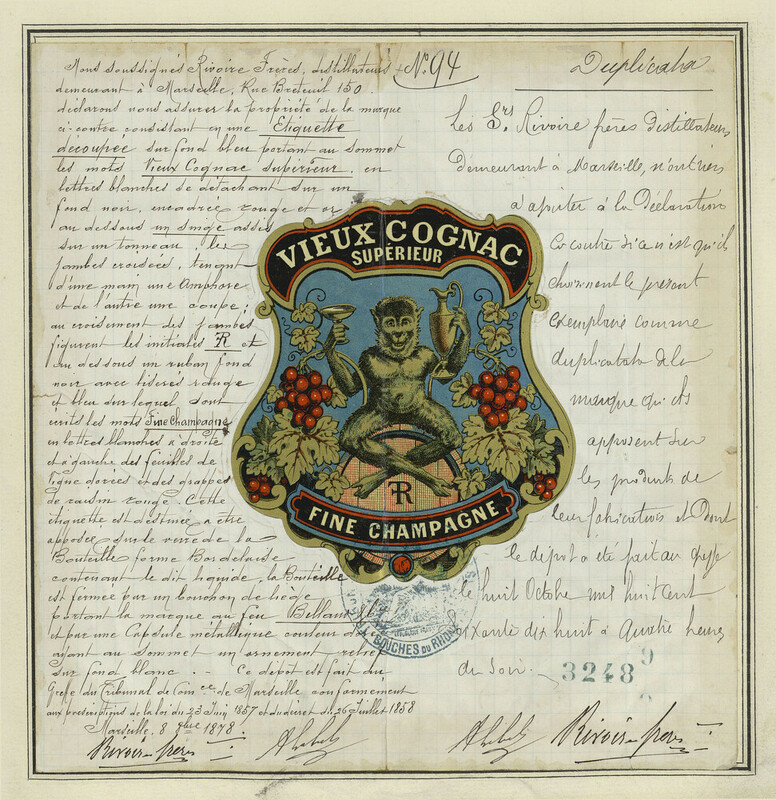 Nous soussignés Rivoire Frères, distillateurs
demeurant à Marseille, Rue Breteuil 150.
déclarons nous assurer la propriété de la marque
ci-contre consistant en une Etiquette
découpée sur fond bleu portant au sommet
les mots Vieux Cognac Supérieur. en
lettres blanches se détachant sur un
fond noir, encadrée rouge et or
au dessous un singe assis
sur un tonneau les
jambes croisées, tenant
d'une main une Amphore
et de l'autre une coupe;
au croisement des jambes
figurent les initiales R et
au dessous un ruban fond
noir avec liserés rouge
et bleu sur lequel sont
écrits les mots Fine Champagne
en lettres blanches à droite
et à gauche des feuilles de
vigne dorées et des grappes
de raisin rouge. Cette
étiquette est destinée à être
apposée sur le verre de la
Bouteille forme Bordelaise
contenant le dit liquide, la Bouteille
est fermée par un bouchon de liège
portant la marque au feu
et par une Capsule métallique couleur
ayant au sommet un ornement relief
sur fond blanc. Ce dépôt est fait au
Greffe du Tribunal de Com ce de Marseille conformément
aux prescriptions de la loi du 23 Juin 1857 et du décret du 26 Juillet 1858
Marseille, 8 8bre 1878.
Rivoire frères
No. 94
Duplicata
Les Srs Rivoire frères Distillateurs
Demeurant à Marseille, n'ont rien
à ajouter à la Déclaration
Ci contre si ce n'est qu'ils
fournissent le présent
exemplaire comme
duplicata de la
marque qu'ils
apposent sur
les produits de
leur fabrication et Dont
le dépôt a été fait au Greffe
le huit Octobre mil huit Cent
soixante dix huit à Quatre heures
du Soir.
3248
9
Rivoire frères
VIEUX COGNAC
SUPÉRIEUR
R
FINE CHAMPAGNE
BOUCHES DU RHÔNE